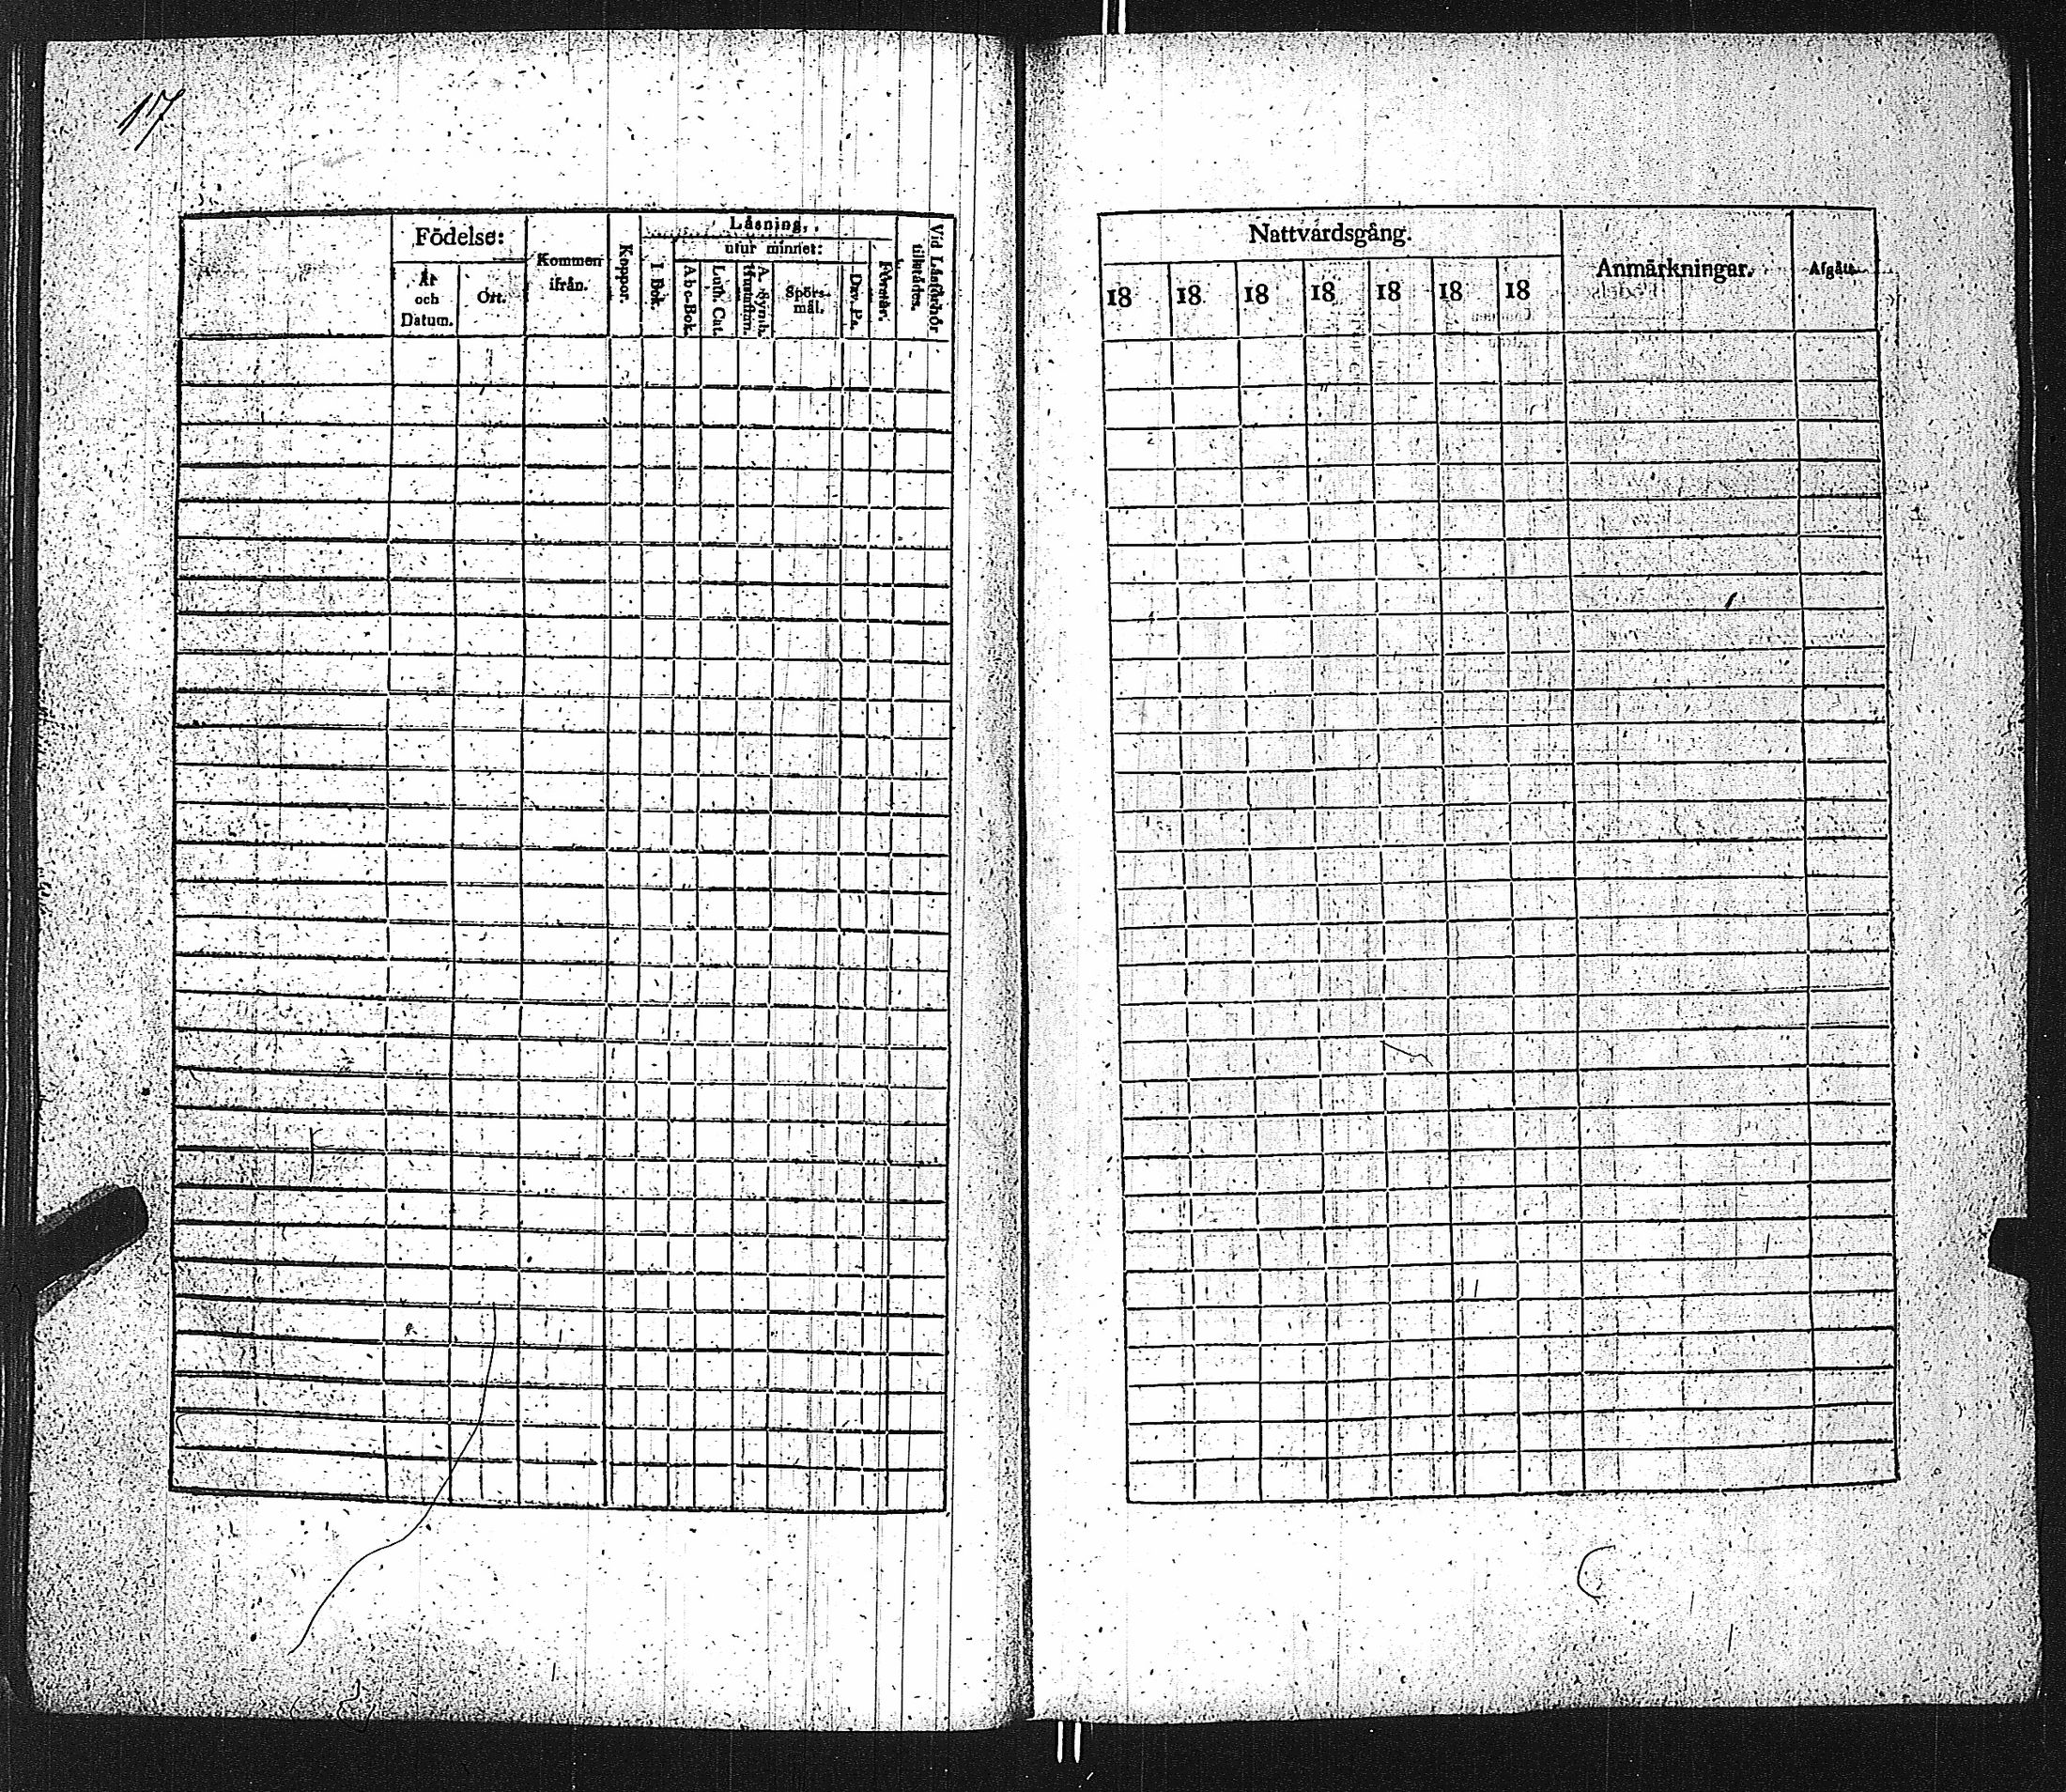 17
Födelse:
År och Datum.
Ort.
Kommen ifrån.
Koppor.
Läsning.
utur minnet:
I. Bok.
A b c-Bok.
Luth. Cat.
A. Symb.
Spörs-mål.
Dav. Ps.
Förstår.
Vid Läsförhör tilstädes.
Nattvardsgång.
18 18 18 18 18 18 18
Anmärkningar.
Afgått.